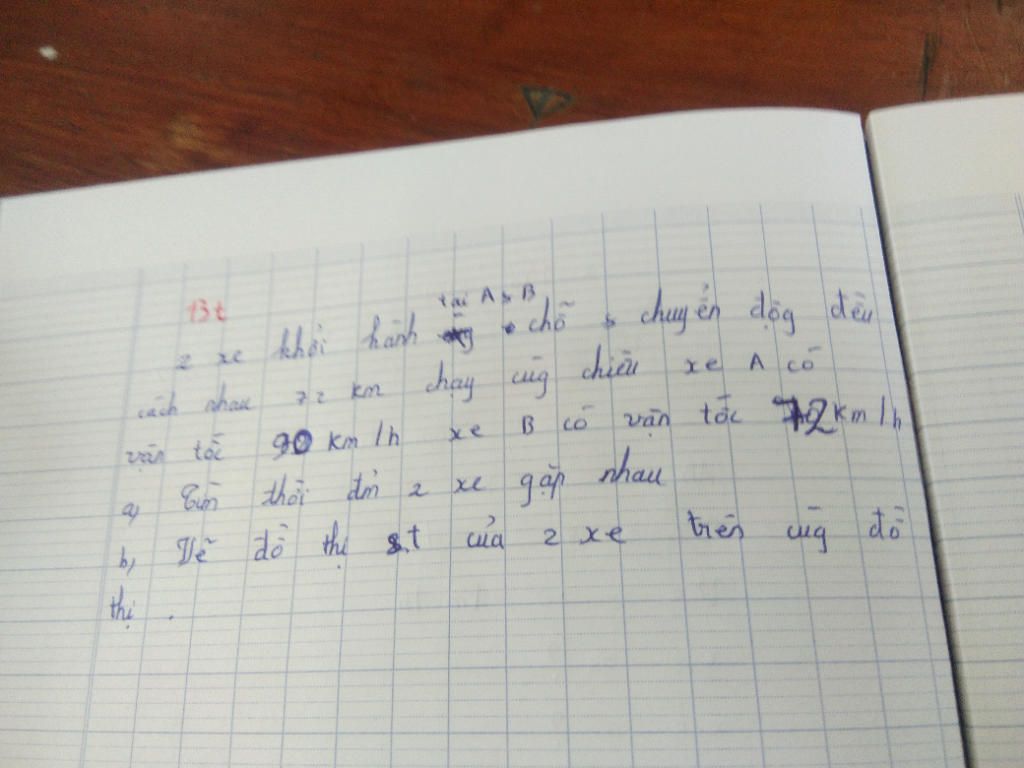 Bt
2 xe khởi hành tại A, B chỗ chuyển độg đều
cách nhau 72 km chạy cùg chiều xe A có
vận tốc 90 km/h xe B có vận tốc 72 km/h
a, Tìm thời đm 2 xe gặp nhau
b, Vẽ đồ thị s.t của 2 xe trên cùg đồ
thị.